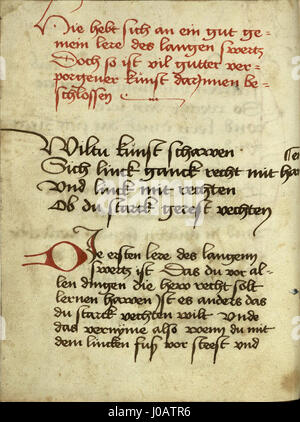 Hie hebt sich an ein gut ge-
mein lere des langen swertz
Doch so ist vil gutter ver-
porgener kunst darJnnen be-
schlossen
Wiltu kunst schawen
Sich linck ganck recht mit haw
Vnd linck mit rechten
Ob du starck gerest vechten
Die ersten lere des langenn
swertz ist Das du vor al-
len dingen die hew recht solt
lernen hawen Ist es anders das
du starck vechten wilt Vnde
das vernyme also wenn du mit
dem lincken fuß vor steest vnd
alamy
Image ID: J0ATR6
www.alamy.com